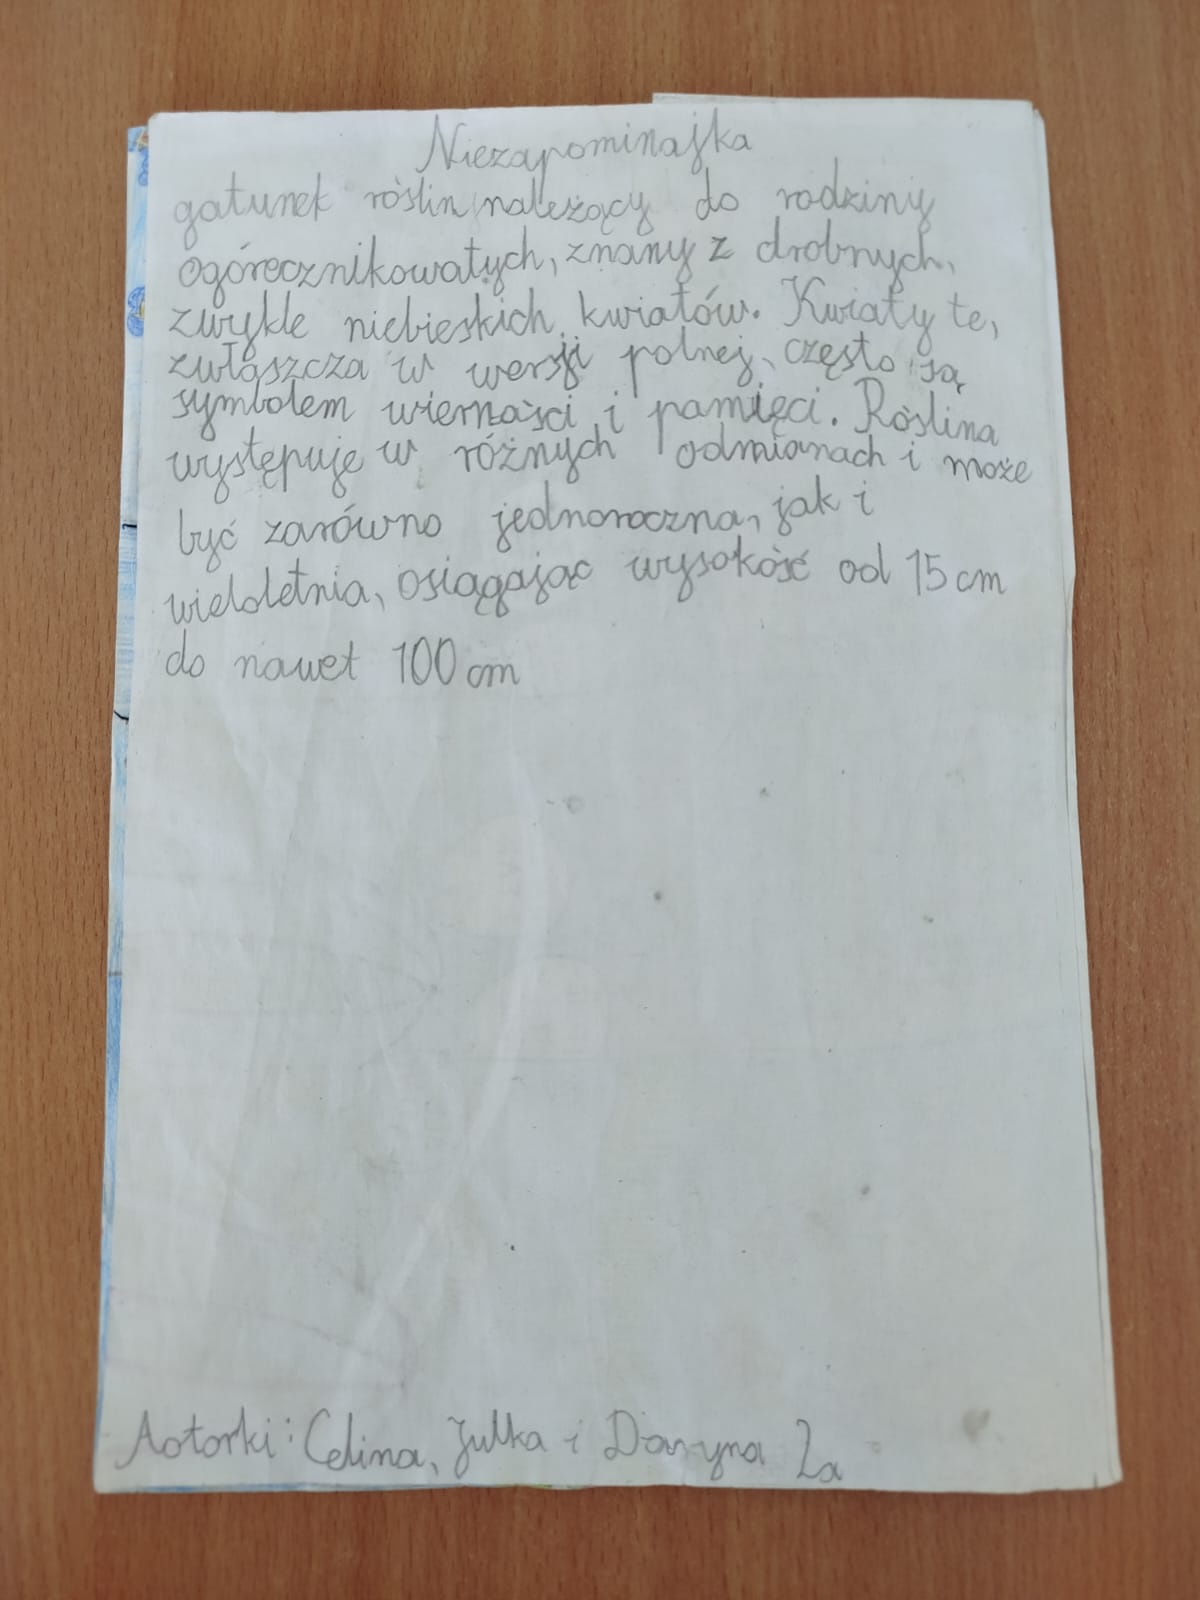 Niezapominajka
gatunek roślin należący do rodziny
ogórecznikowatych, znany z drobnych,
zwykle niebieskich kwiatów. Kwiaty te,
zwłaszcza w wersji polnej, często są
symbolem wierności i pamięci. Roślina
występuje w różnych odmianach i może
być zarówno jednoroczna, jak i
wieloletnia, osiągając wysokość od 15 cm
do nawet 100 cm
Aotorki: Celina, Julka i Daryna 2a